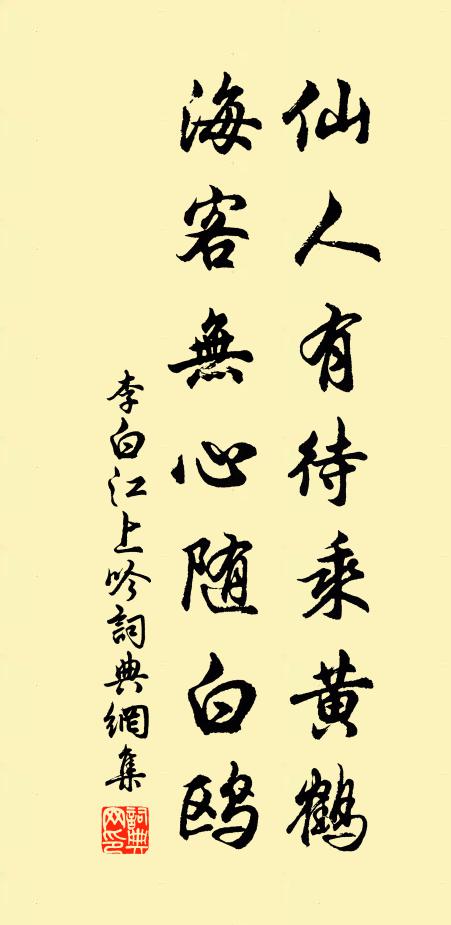 仙人有待乘黄鶴
海客無心随白鸥
李白江上吟詞典網集
詞典网印